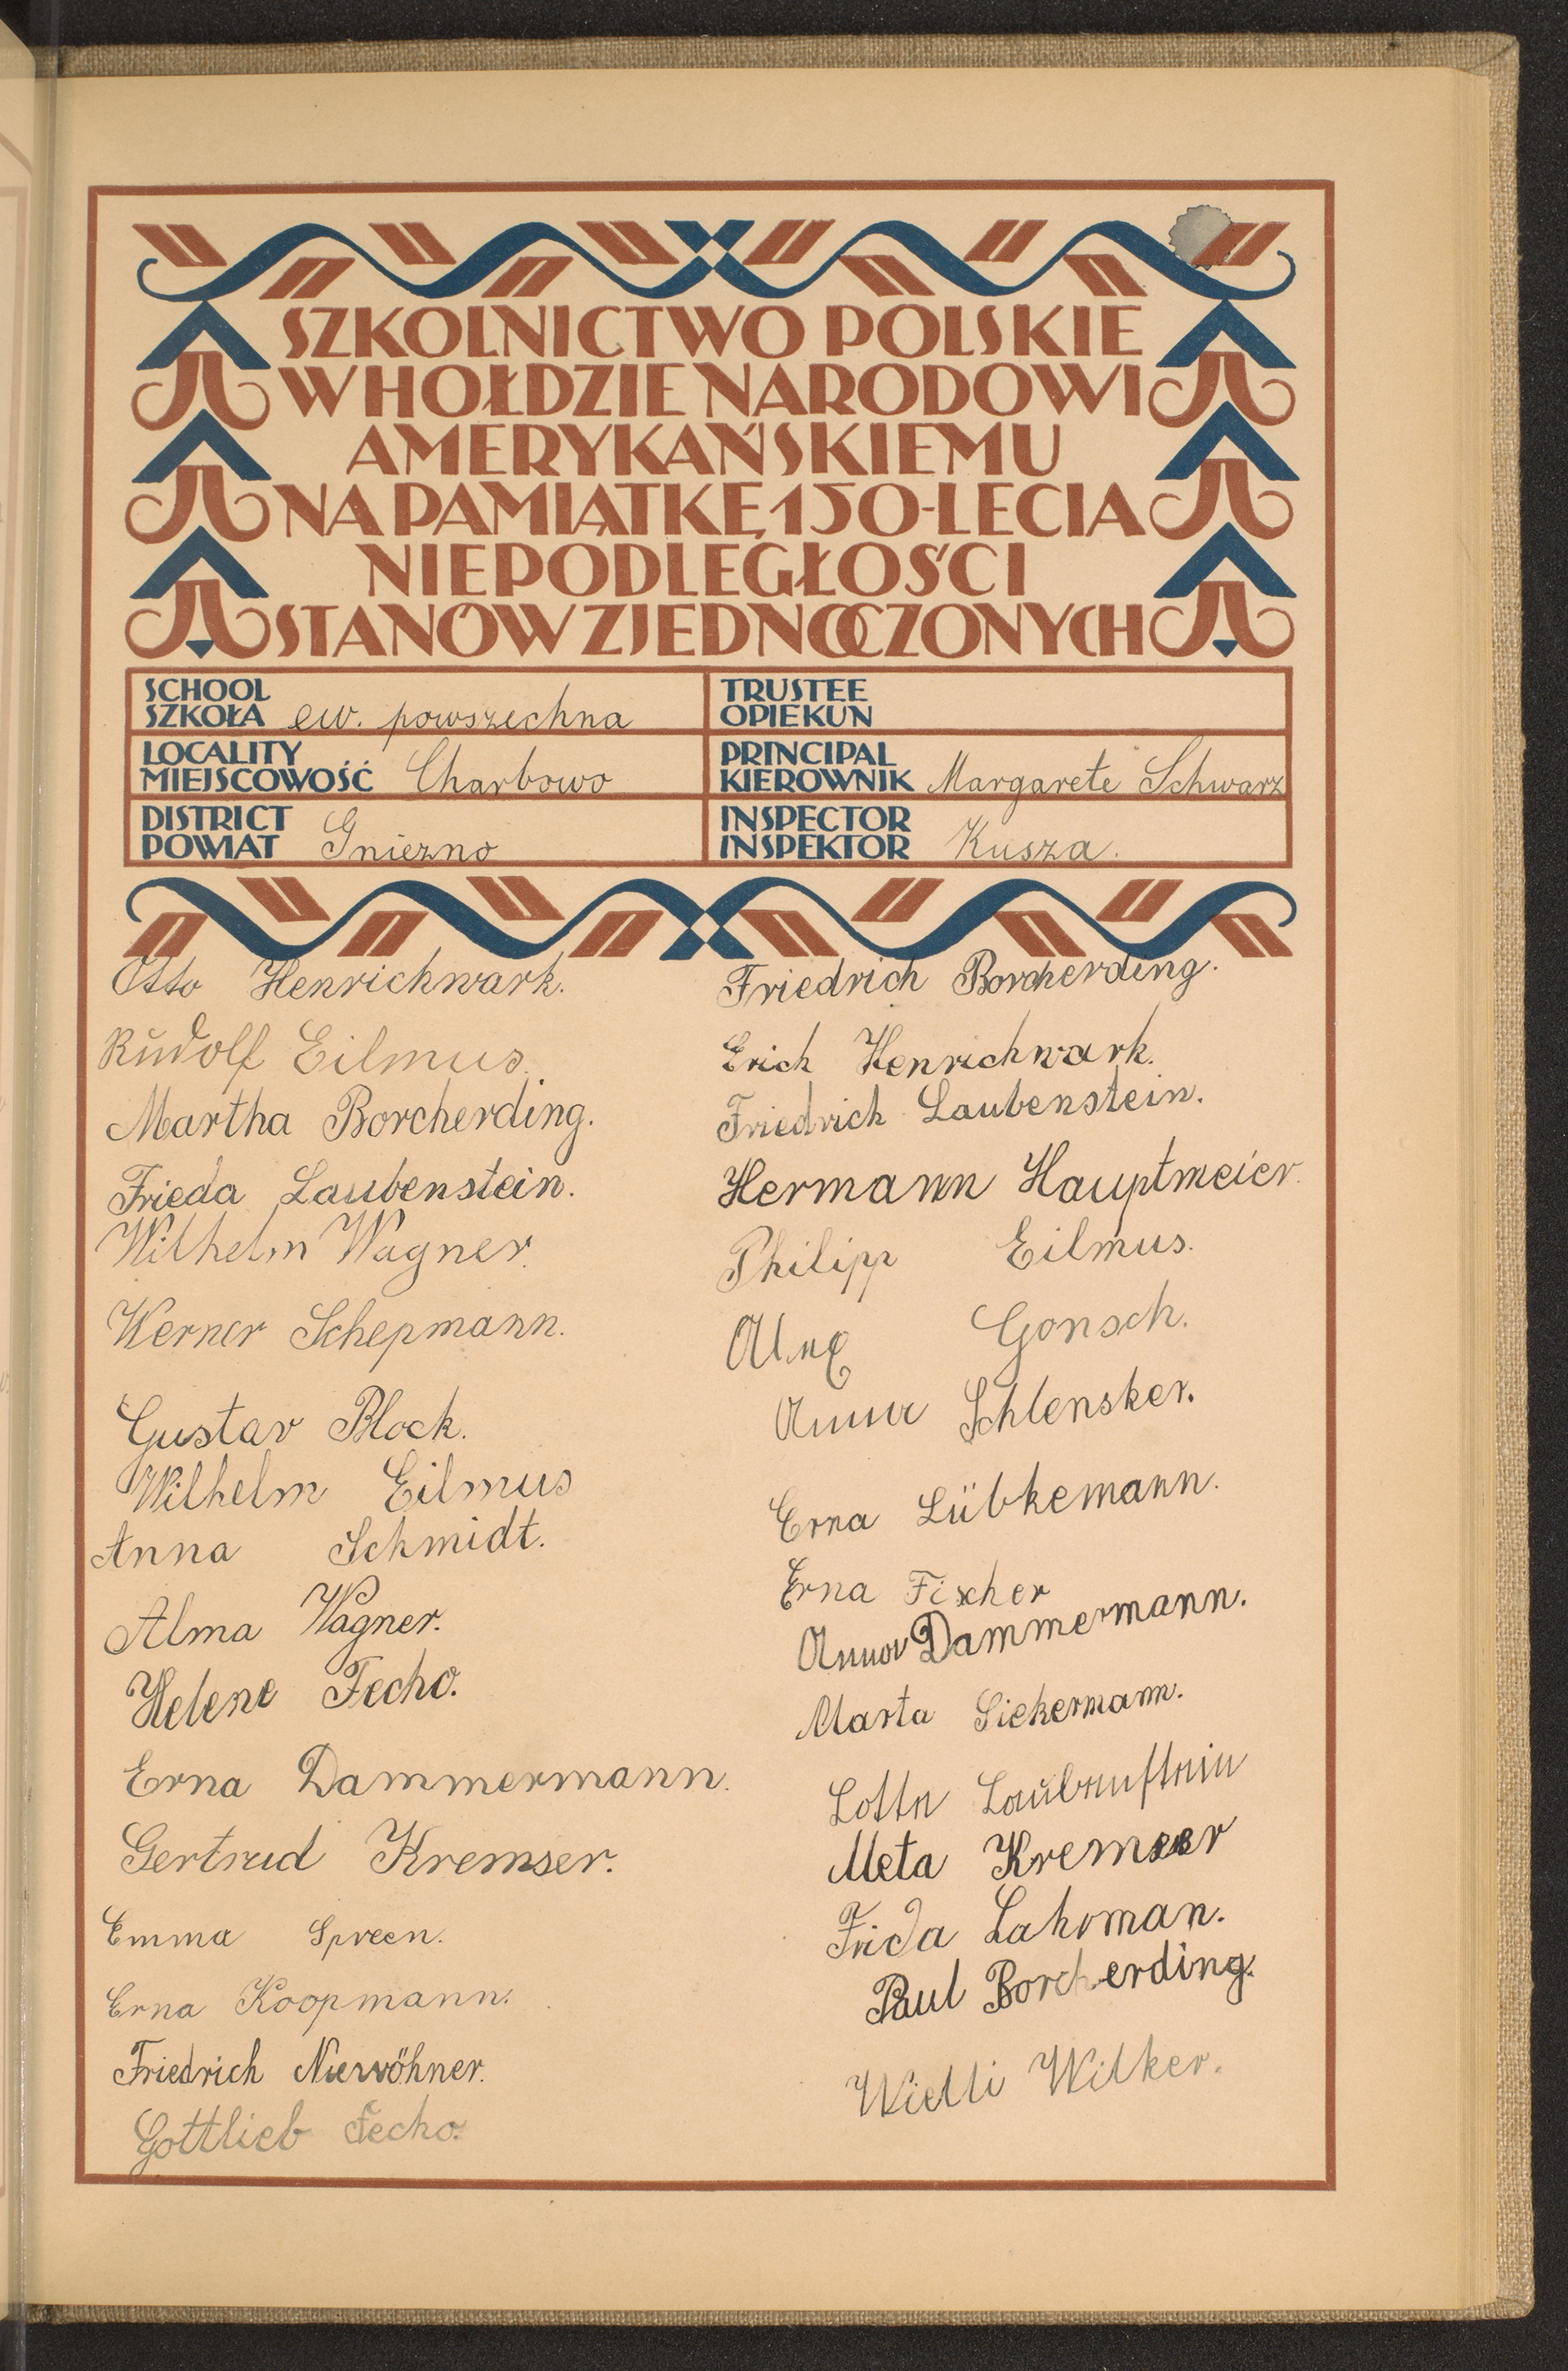 SZKOLNICTWO POLSKIE
W HOŁDZIE NARODOWI
AMERYKAŃSKIEMU
NA PAMIĄTKĘ 150-LECIA
NIEPODLEGŁOŚCI
STANÓW ZJEDNOCZONYCH
SCHOOL
SZKOŁA ew. powszechna
TRUSTEE
OPIEKUN
LOCALITY
MIEJSCOWOŚĆ Charbowo
PRINCIPAL
KIEROWNIK Margarete Schwarz
DISTRICT
POWIAT Gniezno
INSPECTOR
INSPEKTOR Kusza.
Otto Henrichwark.
Rŭdolf Eilmus.
Martha Borcherding.
Frieda Laubenstein.
Wilhelm Wagner.
Werner Schepmann.
Gustav Block.
Wilhelm Eilmus
Anna Schmidt.
Alma Wagner.
Helene Fecho.
Erna Dammermann.
Gertrud Kremser.
Emma Spreen.
Erna Koopmann.
Friedrich Niewöhner.
Gottlieb Fecho.
Friedrich Borcherding.
Erich Henrichwark.
Friedrich Laubenstein.
Hermann Hauptmeier.
Philipp Eilmus.
Gonsch.
Anna Schlensker.
Erna Lübkemann.
Erna Fischer
Anna Dammermann.
Marta Siekermann.
Lotte Laŭbenstein
Meta Kremser
Frida Lahrman.
Paul Borcherding.
Wielli Wilker.